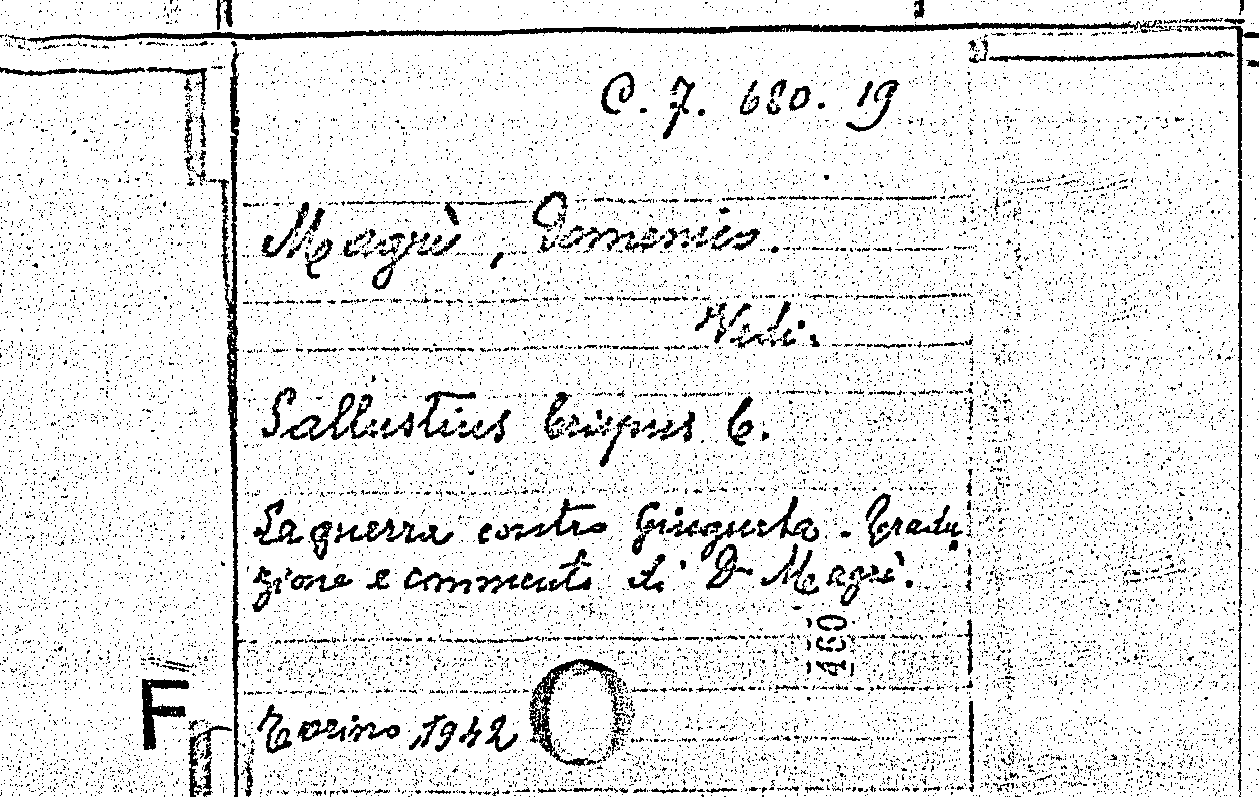 C. 7. 680. 19
Magrì, Domenico.
Vedi:
Sallustius Crispus C.
La guerra contro Giugurta. Tradu
zione e commento di D. Magrì.
460
F
Torino, 1942